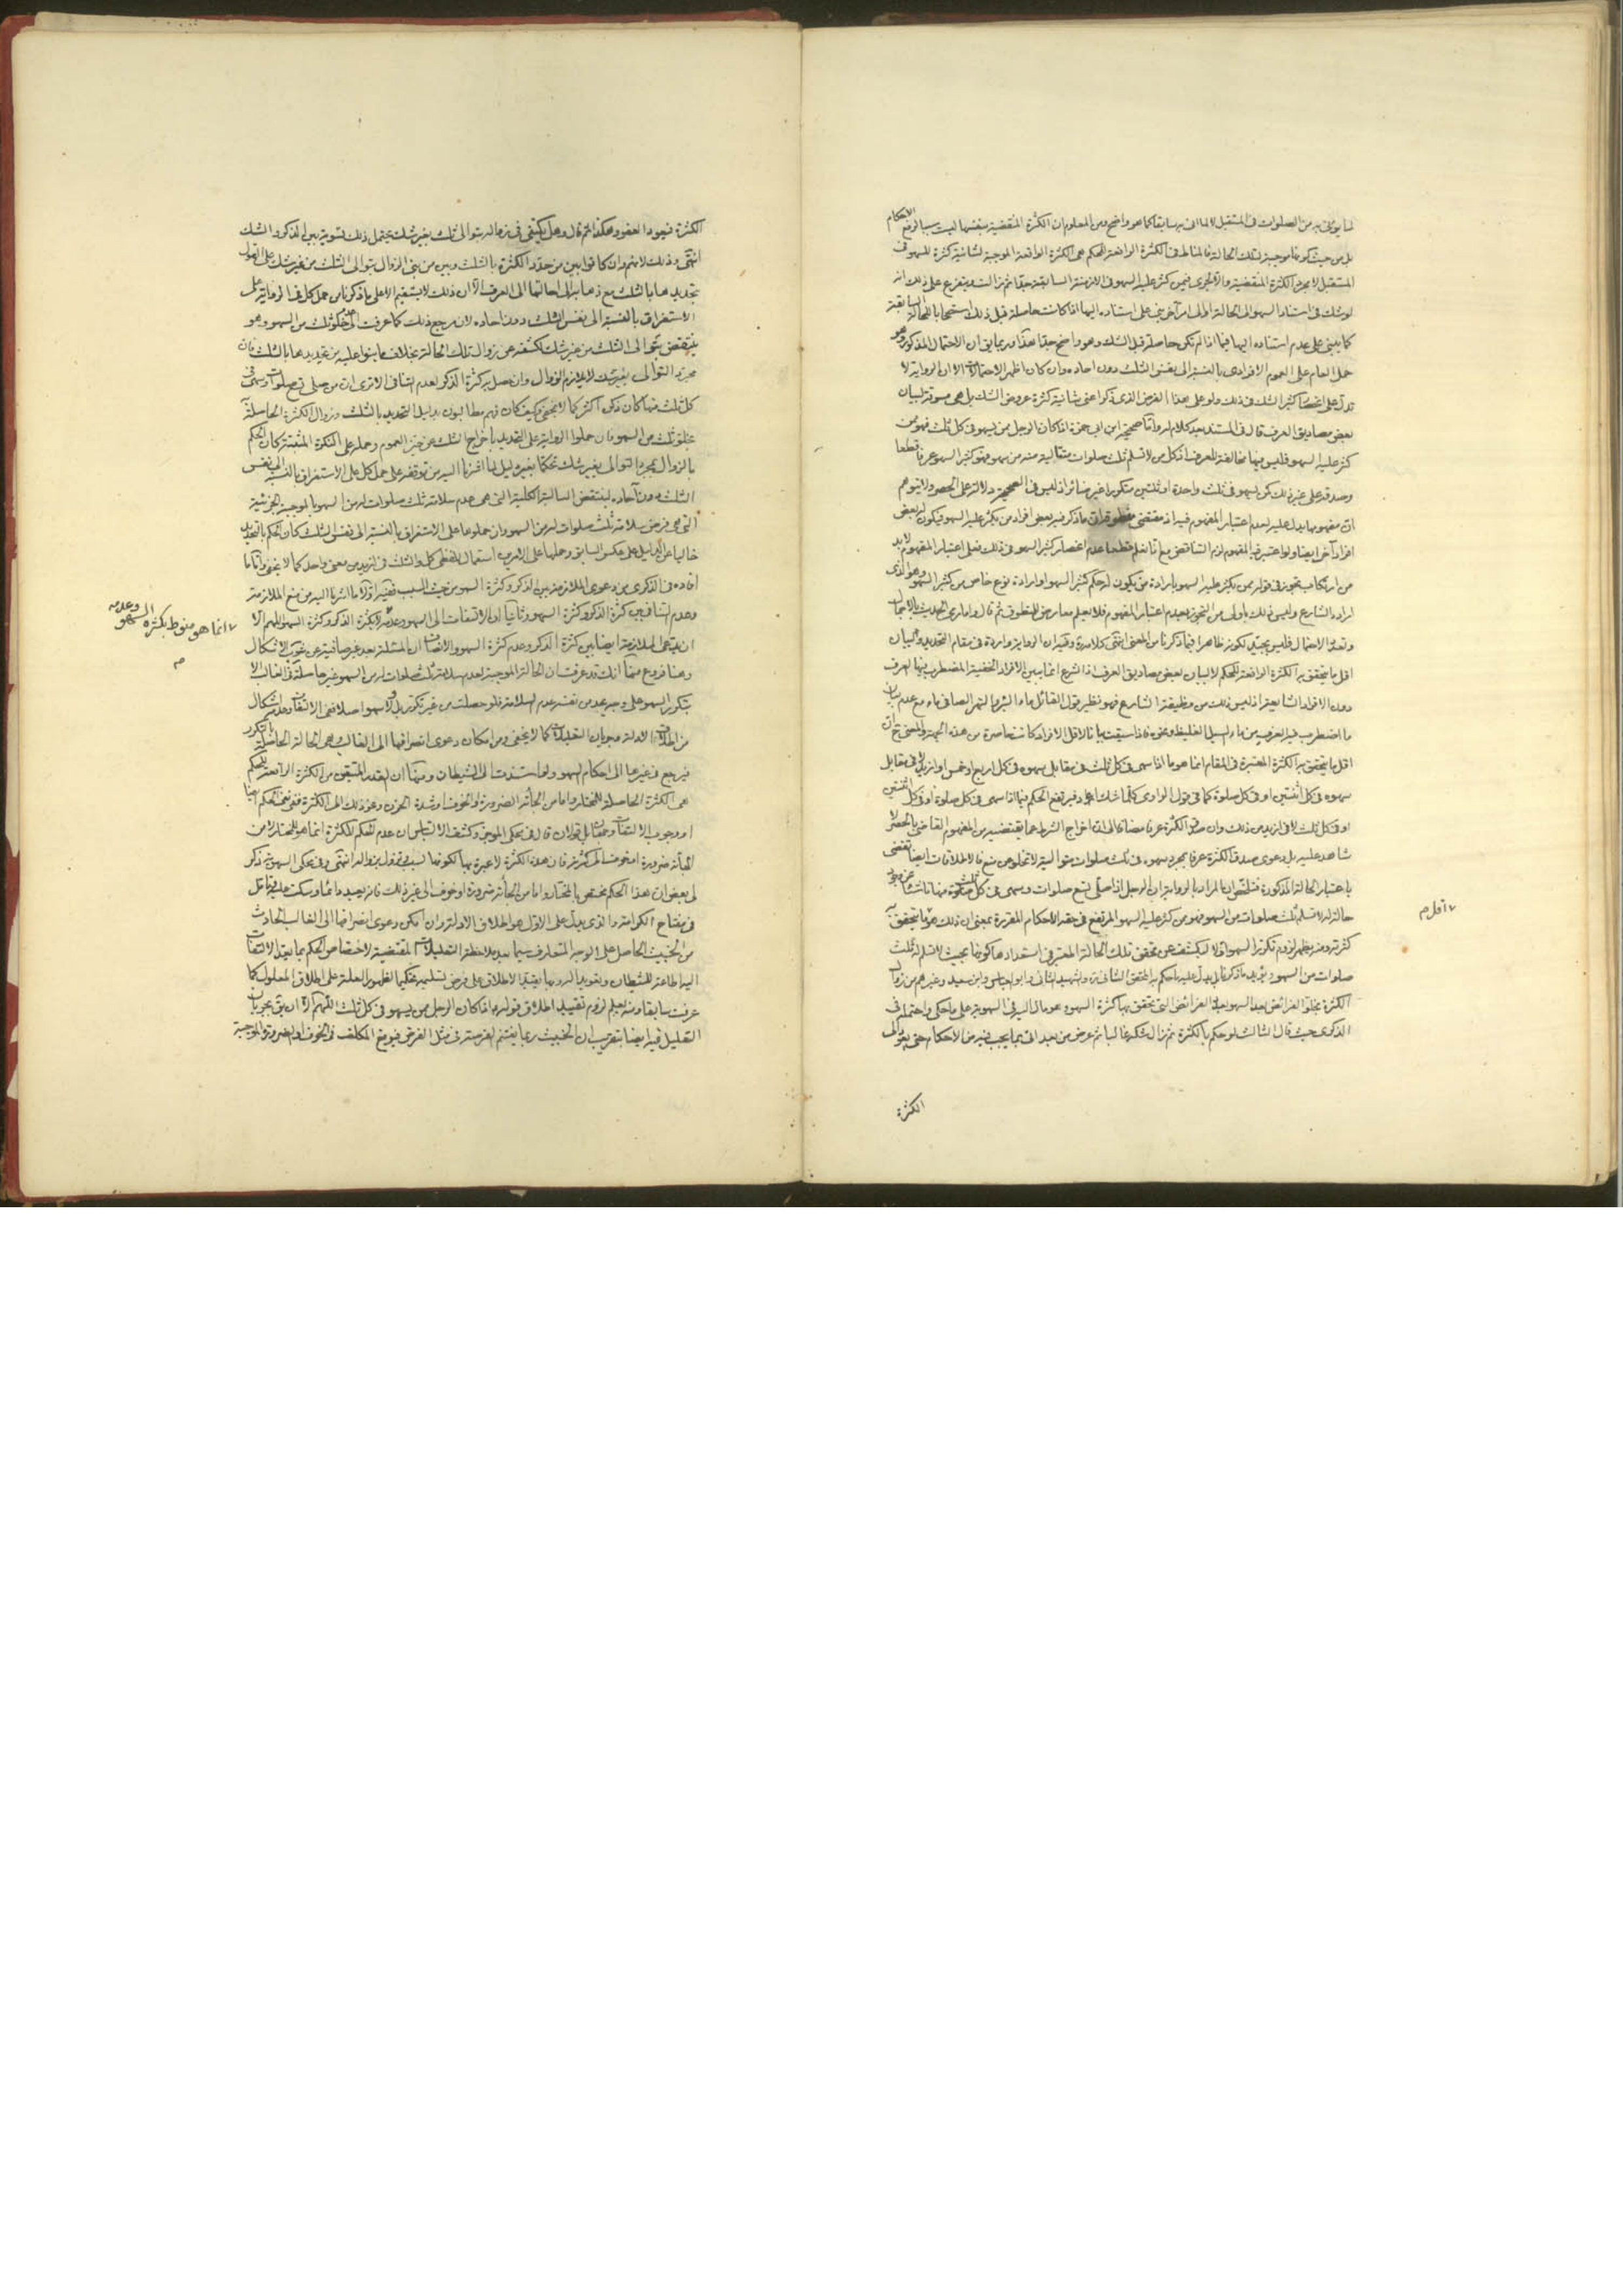 لما يؤتى به من الصلوات في المستقبل لا لما اتى به سابقا كما هو واضح ومن المعلوم ان الكثرة المقتضية بنفسها ليست سببا لرفع الاحكام
بل من حيث كونها موجبة لتلك الحالة فالمناط في الكثرة الرافعة للحكم هي الكثرة الواقعة الموجبة لشانية كثرة السهو في
المستقبل لا مجرد الكثرة المنقضية فيمن كثر عليه السهو في الازمنة السابقة ويتفرع على ذلك انه
لو شك في استناد السهو الى الحالة او الى امر آخر بنى على استناده اليها اذا كانت حاصلة قبل ذلك استصحابا للحالة السابقة
كما يبنى على عدم استناده اليها فيما اذا لم تكن حاصلة قبل الشك وهو واضح هذا وربما يق ان الاحتمال المذكور وهو
حمل العام على العموم الافرادي بالنسبة الى نفس الثلث دون احاده وان كان اظهر الاحتمالات الا ان الرواية لا
تدل على كثير الشك في ذلك ولو على هذا الفرض الذي ذكر اعني شانية كثرة عروض الشك بل هي مسوقة لبيان
بعض مصاديق العرف قال في المستند بعد كلام له واما صحيحة ابن ابي حمزة اذا كان الرجل ممن يسهو في كل ثلث فهو ممن
كثر عليه السهو فليس فيها مخالفة للعرف اذ كل من لا تسلم ثلث صلوات متتالية منه من سهو فهو كثير السهو عرفا قطعا
وصدقه على غيره ايضا كمن يسهو في ثلث واحدة او ثلثين متكررا غير ضائر اذ ليس في الصحيحة دلالة على الحصر ولا يتوهم
ان مفهومها يدل عليه لعدم اعتبار المفهوم فيه اذ مقتضى منطوقه ان ما ذكر فيه بعض افراد من يكثر عليه السهو فيكون له بعض
افراد آخر ايضا ولو اعتبر فيه المفهوم لزم التناقض مع انا نعلم قطعا عدم انحصار كثير السهو في ذلك فعلى اعتبار المفهوم لا بد
من ارتكاب تجوز في قوله ممن يكثر عليه السهو بارادة من يكون له حكم كثير السهو او ارادة نوع خاص من كثير السهو وهو الذي
اراده الشارع وليس ذلك باولى من التجوز بعدم اعتبار المفهوم فلا يعلم معارض للمنطوق ثم قال واما رمي الحديث بالاجمال
وتعدد الاحتمال فليس بجيد لكونه ظاهرا فيما ذكرنا من المعنى انتهى كلامه وفيه ان الرواية واردة في مقام التحديد والبيان
اقل ما يتحقق به الكثرة الرافعة للحكم لا لبيان بعض مصاديق العرف اذ الشرع انما يبين الافراد الخفية المضطرب فيها العرف
دون الافراد الشايعة اذ ليس ذلك من وظيفة الشارع فهو نظير قول القائل ماء البئر والتمر الصافي ماء مع عدم بيان
ما اضطرب فيه العرف من ماء السيل الغليظ ونحوه فاذا سيقت بيانا لاقل الافراد كانت حاصرة من هذه الجهة والمعنى ح ان
اقل ما يتحقق به الكثرة المعتبرة في المقام انما هو ما اذا سهى في كل ثلث في مقابل سهوه في كل اربع او خمس او ازيد لا في مقابل
سهوه في كل اثنتين او في كل صلوة كما في قول الراوي كلما شك اعاد فيرتفع الحكم فيما اذا سهى في كل صلوة او في كل اثنتين
او في كل ثلث لا في ازيد من ذلك وان صدق الكثرة عرفا مضافا الى ان اخراج الشرط عما يقتضيه من المفهوم القاضي بالحصر لا
شاهد عليه بل دعوى صدق الكثرة عرفا بمجرد سهوه في ثلث صلوات متوالية لا تخلو عن منع فالاطلاقات ايضا تقضى
باعتبار الحالة المذكورة فتلخص ان المراد بالرواية ان الرجل اذا صلى تسع صلوات وسهى في كل ثلث منها ناشئا عن وجود
حالة له لا تسلم ثلث صلوات من السهو فهو ممن كثر عليه السهو المرتفع في حقه الاحكام المقررة بمعنى ان ذلك ما يتحقق به
كثرته ومنه يظهر لزوم تكرر السهو اولا ليكشف عن تحقق تلك الحالة المعتبر في استعدادها كونها بحيث لا تسلم له ثلث
صلوات من السهو ويؤيد ما ذكرنا بل يدل عليه ما حكم به المحقق الثاني ره والشهيد الثاني وابو العباس وابن سعيد وغيرهم من زوال
الكثرة بخلو الفرائض بعد السهو بعدد الفرائض التي تتحقق بها كثرة السهو وهو مال اليه في السهوية على ما حكى واحتمله في
الذكرى حيث قال الثالث لو حكم بالكثرة ثم زال شكه غالبا ثم عرض من بعد اتى بما يجب فيه من الاحكام حتى يعود الى
الكثرة
اقل م
الكثرة فيعود العفو وهكذا ثم قال وهل يكتفى في زواله بتوالي ثلث بغير شك يحتمل ذلك لتسوية بين الذكر والشك
انتهى وذلك لانهم وان كانوا بين من حدد الكثرة بالثلث وبين من بنى الزوال بتوالي الثلث من غير شك على القول
بتحديدها بالثلث مع ذهابه الى احالتها الى العرف الا ان ذلك لا يستقيم الا على ما ذكرناه من حمل كل في الرواية على
الاستغراق بالنسبة الى نفس الثلث دون احاده لان مرجع ذلك كما عرفت الى خلو ثلث من السهو وهو
ينتقض بتوالي الثلث من غير شك لكشفه عن زوال تلك الحالة بخلاف ما بنوا عليه من تحديدها بالثلث فان
مجرد التوالي بغير شك لا يلازم الزوال وان حصل به كثرة الذكر لعدم التنافي الا ترى ان من صلى تسع صلوات وسهى في
كل ثلث منها كان ذكره اكثر كما لا يخفى وكيف كان فهم مطالبون بدليل التحديد بالثلث وزوال الكثرة الحاصلة
بخلو ثلث من السهو فان حملوا الرواية على التحديد باخراج الثلث عن حيز العموم وحمله على النكرة المثبتة كان الحكم
بالزوال بمجرد التوالي بغير شك تحكما بغير دليل لما اشرنا اليه من توقفه على حمل كل على الاستغراق بالنسبة الى نفس
الثلث دون آحاده لينتقض السالبة الكلية التي هي عدم سلامة ثلث صلوات له من السهو بالموجبة الجزئية
التي هي فرض سلامة ثلث صلوات له من السهو وان حملوها على الاستغراق بالنسبة الى نفس الثلث كان الحكم بالتحديد
خاليا عن الدليل على عكس السابق وحملها على الامرين استعمال للفظي كل والثلث في ازيد من معنى واحد كما لا يخفى واما ما
افاده في الذكرى من دعوى الملازمة بين الذكر وكثرة السهو من حيث السبب ففيه اولا ما اشرنا اليه من منع الملازمة
وعدم التنافي بين كثرة الذكر وكثرة السهو وثانيا ان الالتفات الى السهو وعدمه لا بكثرة الذكر وكثرة السهو اللهم الا
ان يدعى الملازمة ايضا بين كثرة الذكر وعدم كثرة السهو والانصاف ان المسئلة بعد غير صافية عن شوب الاشكال
وهنا فروع منها انك قد عرفت ان الحالة الموجبة لعدم سلامة ثلث صلوات له من السهو غير حاصلة في الغالب الا
بتكرر السهو على وجه يعد من نفسه عدم السلامة فلو حصلت من غير تكرر بل ولا سهو اصلا ففي الالتفات وعدمه اشكال
من اطلاق الادلة وجريان التعليلات كما لا يخفى ومن امكان دعوى انصرافها الى الغالب وهي الحالة الحاصلة بالتكرر
فيرجع في غيرها الى احكام السهو ولو استندت الى الشيطان ومنها ان القدر المتيقن من الكثرة الرافعة للحكم
هي الكثرة الحاصلة للمختار واما من الجأته الضرورة او الخوف او شدة الحزن ونحو ذلك الى الكثرة ففي نفي الحكم ايضا
او وجوب الالتفات وجهان بل قولان قال في محكي الموجز وكشف الالتباس ان عدم الحكم للكثرة انما هو للمختار لا من
الجأته ضرورة او خوف الى كثرته فان هذه الكثرة لا عبرة بها لكونها لسبب تزول بزواله انتهى وفي محكي السهوية ذكر
لي بعض ان هذا الحكم مختص بالمختار واما من الجأته ضرورة او خوف الى غير ذلك فانه يعيد دائما وسكت عليه قائل
في مفتاح الكرامة والذي يدل على الاول هو اطلاق الادلة وان امكن دعوى انصرافها الى الغالب الحادث
من الخبيث الحاصل على الوجه المتعارف سيما بعد ملاحظة التعليلات المقتضية لاختصاص الحكم بما يعد الالتفات
اليه اطاعة للشيطان وتعويدا له وبها يقيد الاطلاق على فرض تسليمه تحكيما لظهور العلة على اطلاق المعلول كما
عرفت سابقا ومنه يعلم لزوم تقييد اطلاق قوله ع اذا كان الرجل ممن يسهو في كل ثلث اللهم الا ان يق بجريان
التعليل فيه ايضا بتقريب ان الخبيث ربما يغتنم الفرصة في مثل الفرض فيوقع المكلف في الخوف او الضرورة الموجبة
انما هو منوط بكثرة السهو وعدمه
م